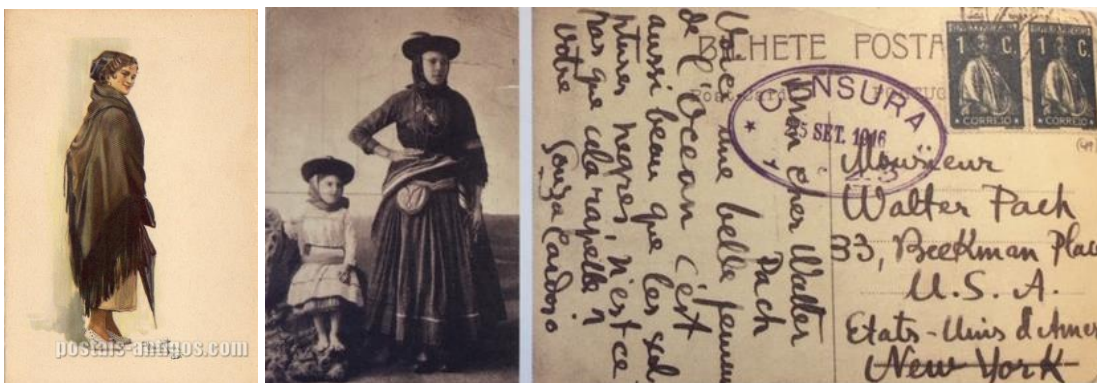 postais-antigos.com
BILHETE POSTA
PORTUG
1 C.
CORREIO
1 C.
CORREIO
CENSURA
25 SET. 1916
Mon cher Walter
Pach
Voici une belle femme
de l'Océan c'est
aussi beau que les scul
ptures negres n'est ce
pas que cela rapelle
Votre Souza Cardoso
Monsieur
Walter Pach
33, Beekman Plac
U.S.A.
Etats-Unis d'Amer
New York